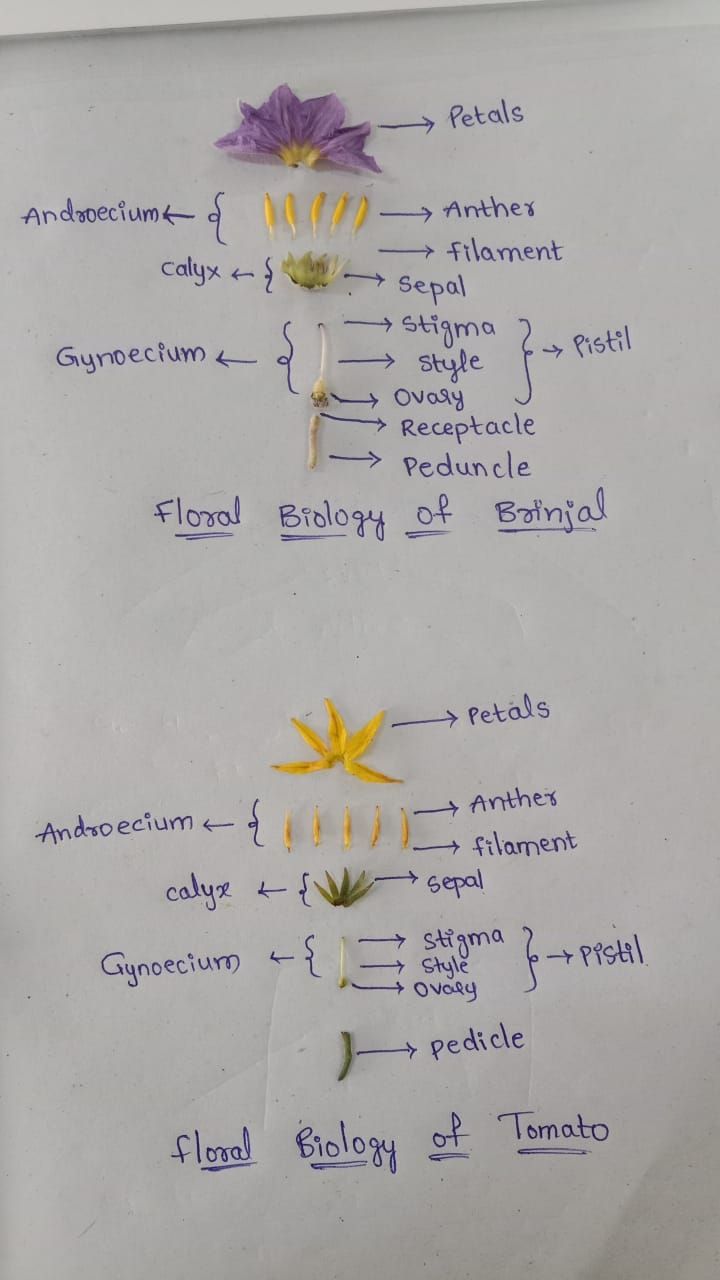 Petals
Androecium
Anther
filament
Calyx
Sepal
Gynoecium
Stigma
Style
Ovary
Pistil
Receptacle
Peduncle
Floral Biology of Brinjal
Petals
Androecium
Anther
filament
calyx
Sepal
Gynoecium
Stigma
Style
Ovary
Pistil
Pedicle
floral Biology of Tomato